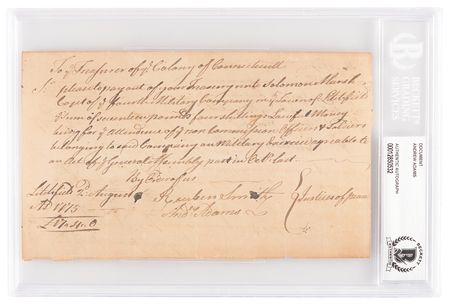 To ye Treasurer of ye Colony of Connecticutt
Sr please to pay out of your Treasury unto Solomon Marsh
Capt of ye fourth Military Company in ye Town of Litchfield
ye sum of seventeen pounds four shillings Lawfull Money
being for ye attendance of ye non Commission Officers & Soldiers
belonging to sd Company on Military Exercise agreable to
an Act of ye General Assembly past in Octr last
Litchfield 2d August
AD 1775
£17..4..0
Reuben Smith
Andw Adams
Justices of peace
BECKETT
AUTHENTIC AUTOGRAPH
DOCUMENT
ANDREW ADAMS
BECKETT